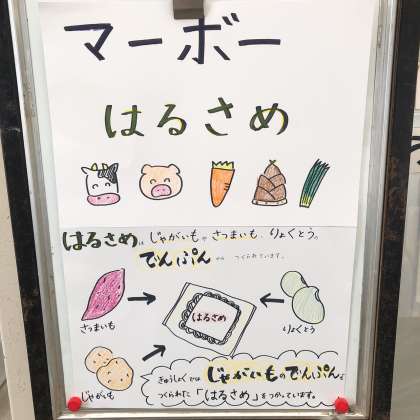 マーボー
はるさめ
はるさめは じゃがいもや さつまいも、りょくとうの
でんぷんから つくられています。
さつまいも
はるさめ
りょくとう
じゃがいも
きゅうしょくでは じゃがいものでんぷんで
つくられた「はるさめ」をつかっています。